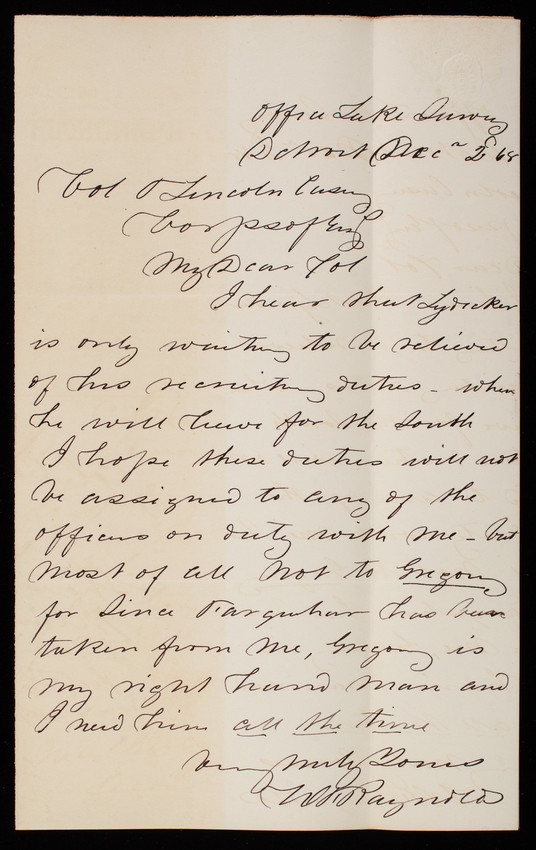 Office Lake Survey
Detroit Dec 2d 68
Col T Lincoln Casey
Corps of Eng
My Dear Col
I hear that Lydecker
is only waiting to be relieved
of his recruiting duties - when
he will leave for the South
I hope these duties will not
be assigned to any of the
officers on duty with me - but
most of all not to Gregory
for since Farquhar has been
taken from me, Gregory is
my right hand man and
I need him all the time
Very truly Yours
W F Raynolds